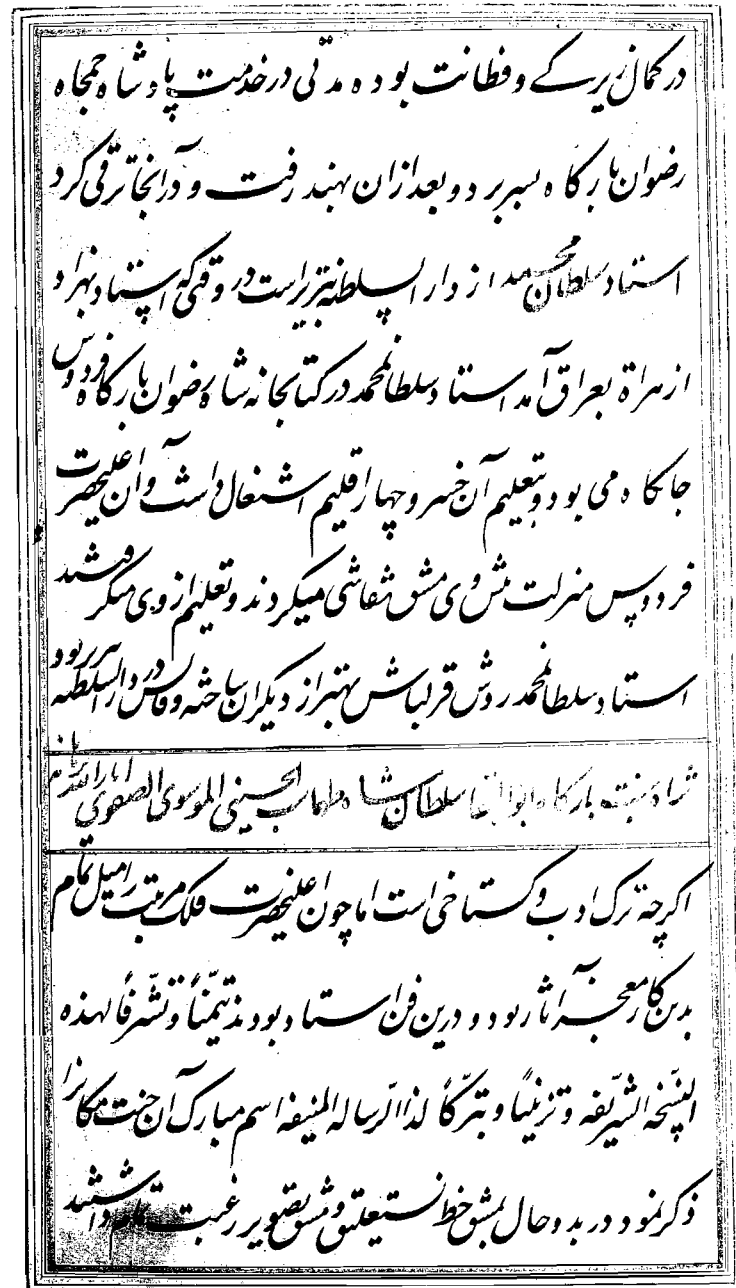 در کمال زیرکے و فطانت بوده مدتی در خدمت پادشاه جمجاه
رضوان بارکاه بسر برد و بعد از ان بهند رفت و در آنجا ترقی کرد
استاد سلطان محمد از دار السلطنه تبریز است در وقتی که استاد بهزاد
از هراة بعراق آمد استاد سلطانمحمد در کتابخانه شاه رضوان بارکاه فردوس
جاکاه می بود و بتعلیم آن خسرو چهار اقلیم اشتغال داشت و آن اعلیحضرت
فردوس منزلت پیش وی مشق نقاشی میکردند و تعلیم از وی میکرفتند
استاد سلطانمحمد روش قزلباش بهتر از دیکران ساخته وفاتش در دار السلطنه تبریز بود
بارکاه ابوالبقا سلطان شاه طهماسب الحسینی الموسوی الصفوی انار الله برهانه
اکرچه ترک ادب و کستاخی است اما چون اعلیحضرت فلک مرتبت را میل تمام
بدین کار معجز آثار بود و درین فن استاد بودند تیمّناً و تشّرفاً لهذه
النسّخه الشّریفه و تزینیاً و تبرّکاً لذا الرساله المنیفه اسم مبارک آن جنت مکانرا
ذکر نمود در بدو حال بمشق خط نستعلیق و مشق تصویر رغبت تمام داشتند